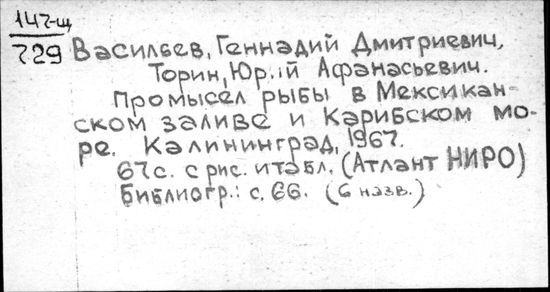 147-щ
729
Васильев, Геннадий Дмитриевич,
Торин, Юрій Афанасьевич.
Промысел рыбы в Мексикан-
ском заливе и Карибском мо-
ре. Калининград, 1967.
67с. с рис. и табл. (Атлант НИРО)
Библиогр.: с. 66. (6 назв.)